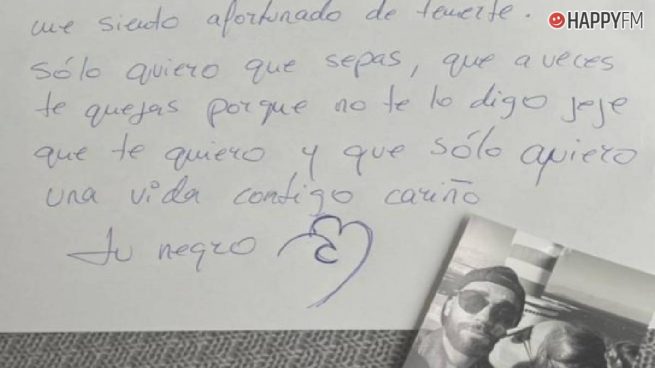 HAPPYFM
me siento afortunado de tenerte.
sólo quiero que sepas, que a veces
te quejas porque no te lo digo jeje
que te quiero y que sólo quiero
una vida contigo cariño
tu negro